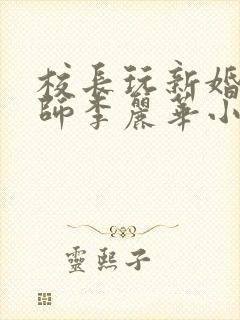 校長玩新婚
師李麗華小
靈熙子